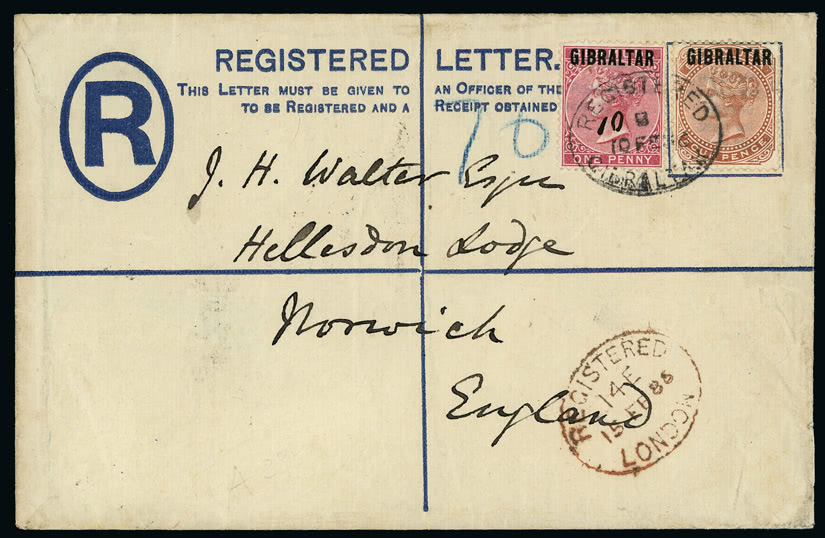 REGISTERED LETTER.
THIS LETTER MUST BE GIVEN TO AN OFFICER OF THE
TO BE REGISTERED AND A RECEIPT OBTAINED
R
GIBRALTAR
ONE PENNY
GIBRALTAR
PENCE
REGISTERED
10
GIBRALTAR
70
J. H. Walter Esqre
Hellesdon Lodge
Norwich
England
REGISTERED
14 F
15 FE 86
LONDON